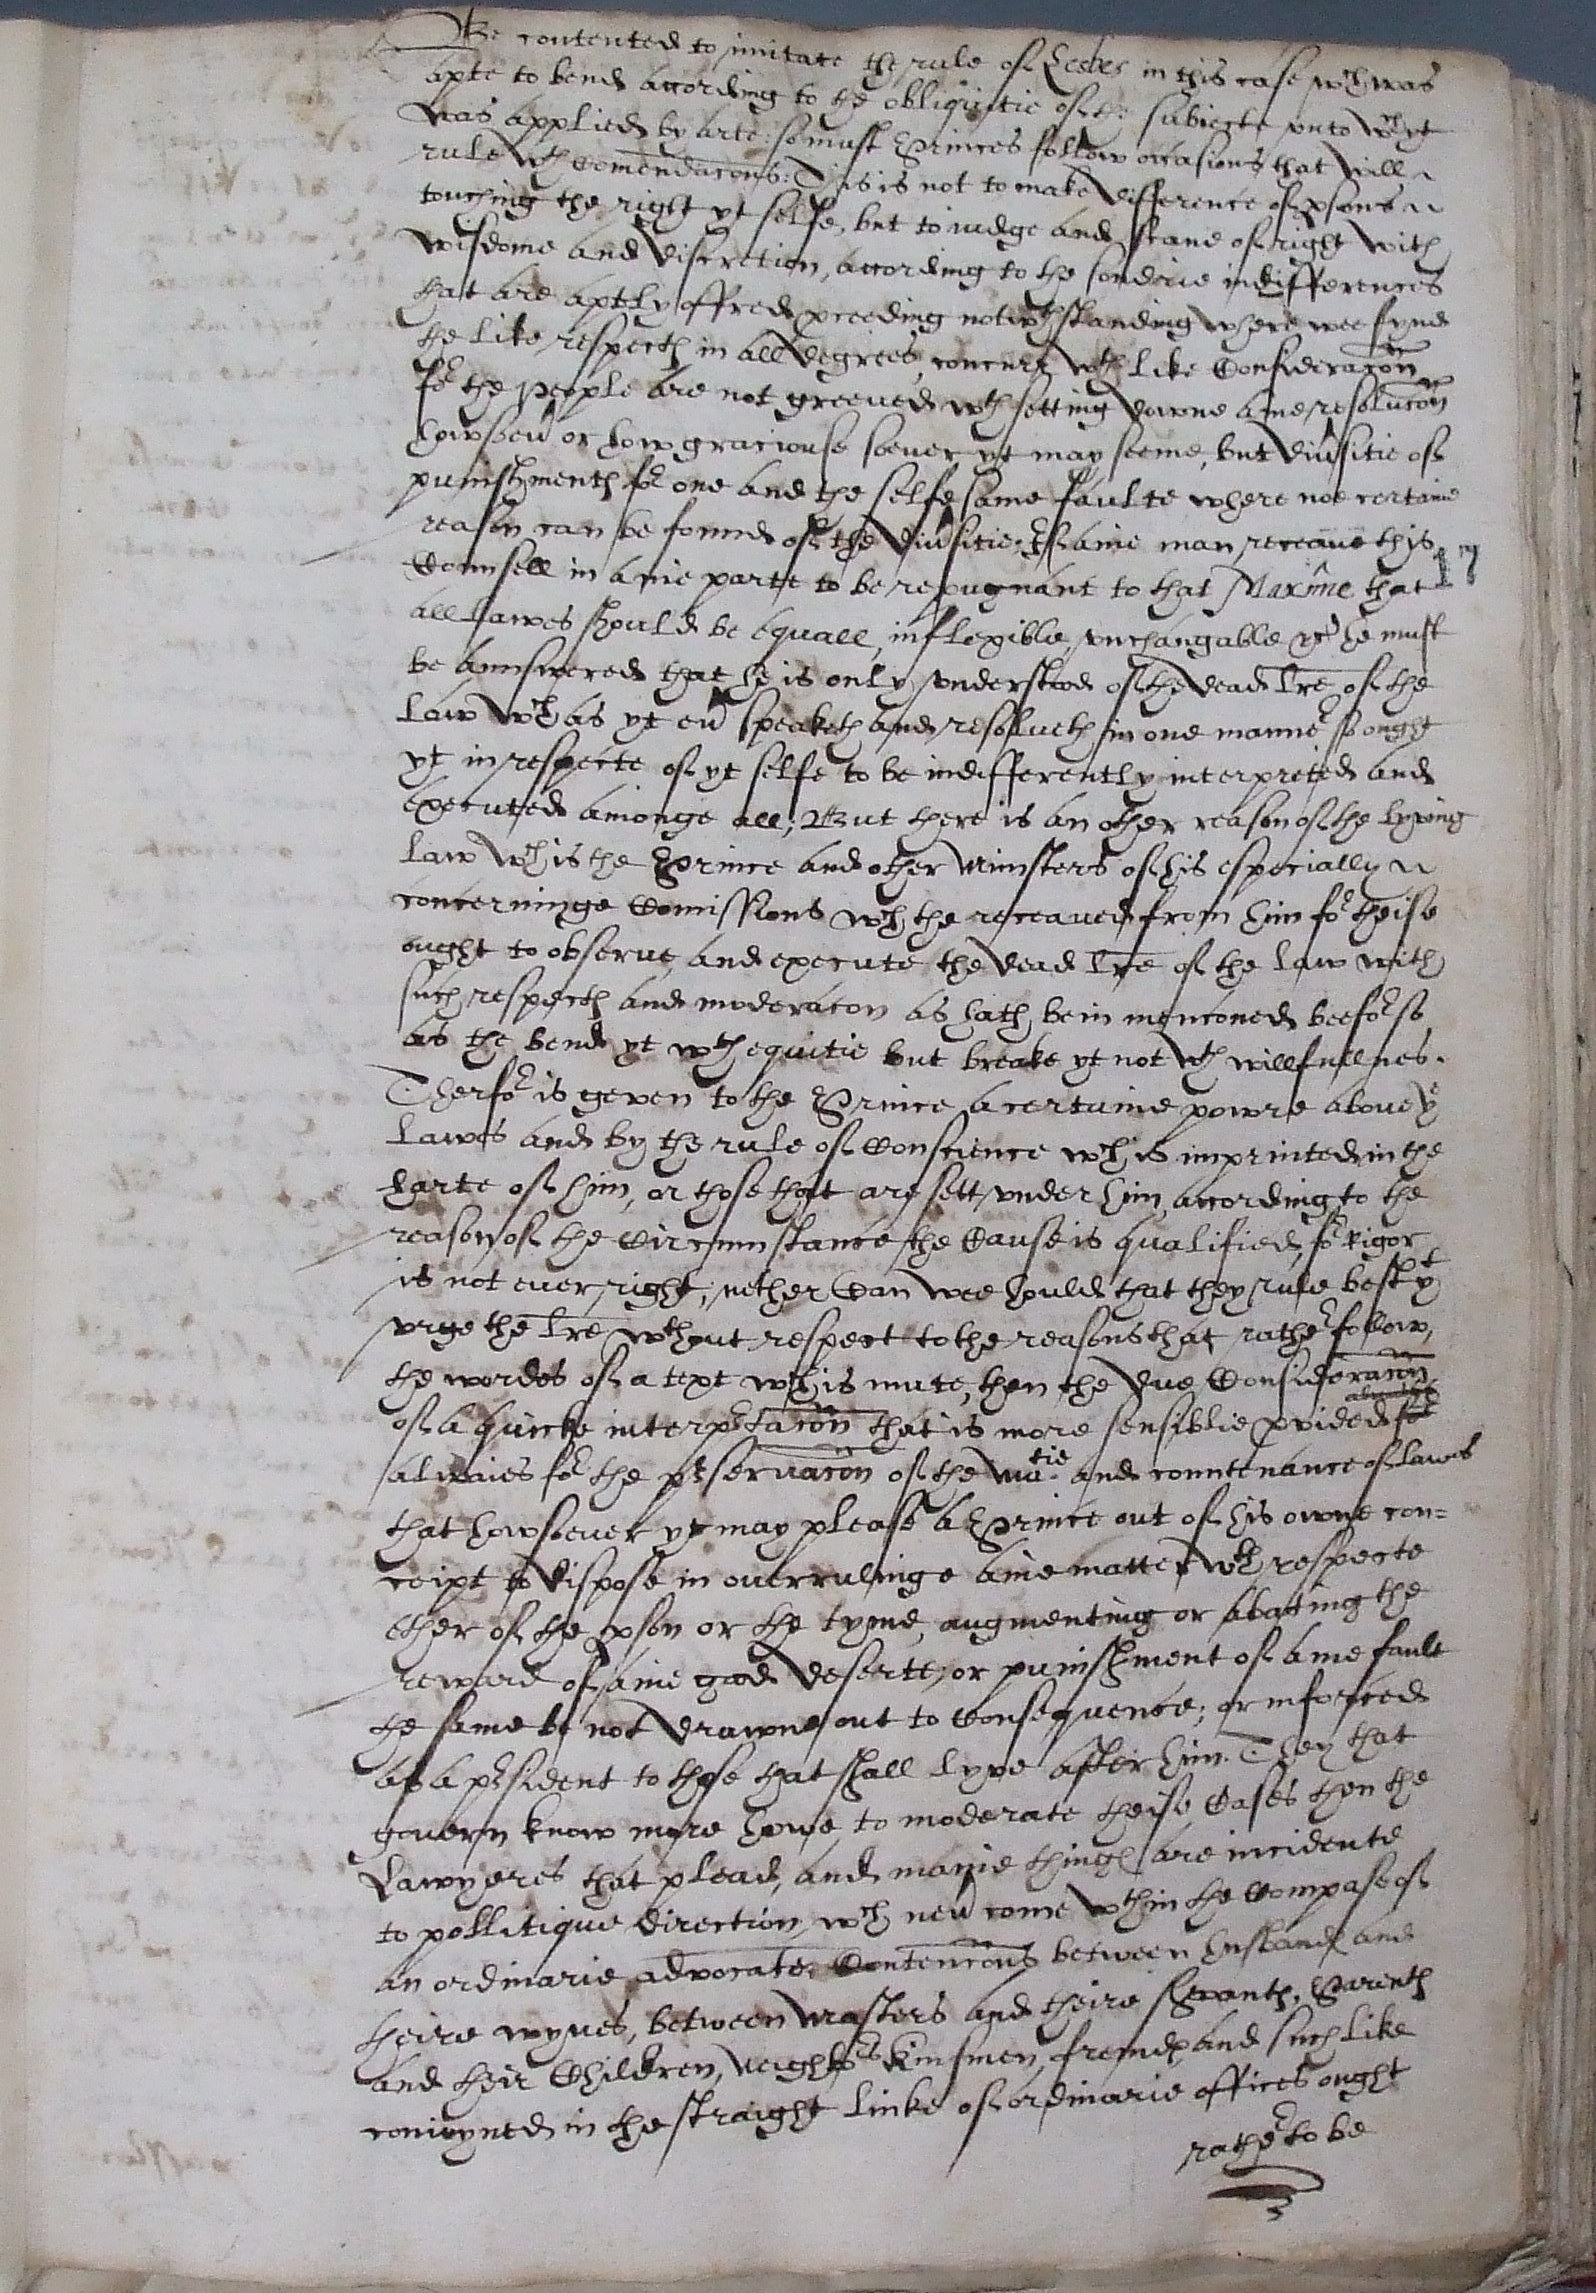 Be contented to imitate the rule of Lesbos in this case wch was
apte to bend according to the obliquitie of the subiecte vnto wch yt
was applied by arte: so must Princes follow occasions that will
rule wth Comendacons: This is not to make difference of psons
touching the right yt selfe, but to iudge and scane of right with
wisdome and discretion, according to the sondrie indifferences
that are aptly offred, preeding notwthstanding where wee fynd
the like respects in all degrees, concurr wth like Consideracon
for the people are not greeued wth setting downe anie resolucon
howsoeu or how graciouse soeuer yt may seeme, but diusitie of
punishments for one and the selfe same faulte where noe certaine
reason can be found of the diusitie. If anie man receaue this
Counsell in anie parte to be repugnant to that Maxime that
17
all Lawes should be equall, inflexible, vnchangable yet he must
be aunswered that he is only vnderstood of the dead lre of the
Law wch as yt eu speaketh and resolueth in one manner so ought
yt in respecte of yt selfe to be indifferently interpreted and
executed amonge all; But there is an other reason of the lyving
Law wch is the Prince and other Ministers of his especially
concerninge Comissions wch the receaued from him for theise
ought to observe and execute the dead lre of the Law with
such respects and moderacon as hath bein menconed beefor so
as the bend yt wth equitie but breake yt not wth willfullnes.
Therfor is geven to the Prince a certaine powre aboue ye
Lawes and by the rule of Conscience wch is imprinted in the
harte of him, or those that are sett vnder him according to the
reason of the Circumstance the Cause is qualified, for rigor
is not euer right, nether Can wee hould that they rule best yt
vrge the lre wthout respect to the reasons that rather follow,
the wordes of a text wch is mute, then the due Consideracon
of a quicke interptacon that is more sensible pvided for
alwaies for the pservacon of the Matie and countenance of lawes
that howsoever yt may please a Prince out of his owne con=
ceipt to dispose in ouerrulinge anie matter wth respecte
ether of the pson or the tyme, augmenting or abating the
reward of anie good deserte, or punishment of anie fault
the same be not drawne out to Consequence; or inforced
as a psident to those that shall lyve after him. They that
govern know more howe to moderate theise Cases then the
Lawyeres that plead, and manie things are incidente
to pollitique direction wch neu come wthin the Compase of
an ordinarie advocate. Contencons between husbands and
theire wyves, between Masters and theire servants, Parents
and their Children, Neighbors Kinsmen, freinds and such like
conioyned in the straight linke of ordinarie offices ought
rather to be